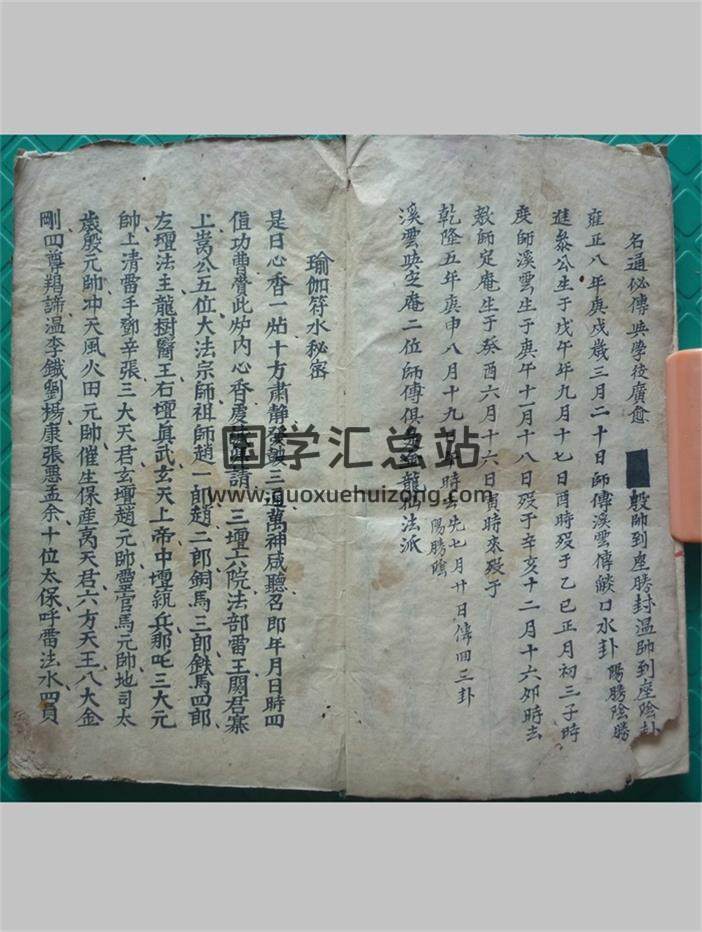 名通秘傳興學後廣愈 殷帥到座勝封溫帥到座陰卦
雍正八年庚戌歲三月二十日師傳溪雲傳 口水卦 陽勝陰勝
進叅公生于戊午年九月十七日酉時歿于乙巳正月初三子時
度師溪雲生于庚午十一月十八日歿于辛亥十二月十六夘時去
教師定庵生于癸酉六月十六日寅時來歿于
乾隆五年庚申八月十九 時去先七月廿日傳回三卦 陽勝陰
溪雲 定庵二位師傅俱 龍 法派
瑜伽符水秘密
是日心香一炷十方肅靜發 三通萬神咸聽召即年月日時四
值功曹賫此炉内心香 請 三壇六院法部雷王闕君寨
上嵩公五位大法宗師祖師趙一郎趙二郎銅馬三郎鉄馬四郎
左壇法主龍樹醫王右壇真武玄天上帝中壇統兵那吒三大元
帥上清雷手鄧辛張三大天君玄壇趙元帥靈官馬元帥地司太
歲殷元帥冲天風火田元帥催生保産高天君六方天王八大金
剛四尊羯諦溫李鐵劉楊康張悪孟余十位太保呼雷法水四員
国学汇总站
www.guoxuehuizong.com